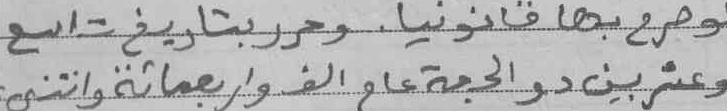 وصرح بها قانونيا. وحرر بتاريخ تاسع
وعشرين ذو الحجة عام الف واربعمائة واثنتي